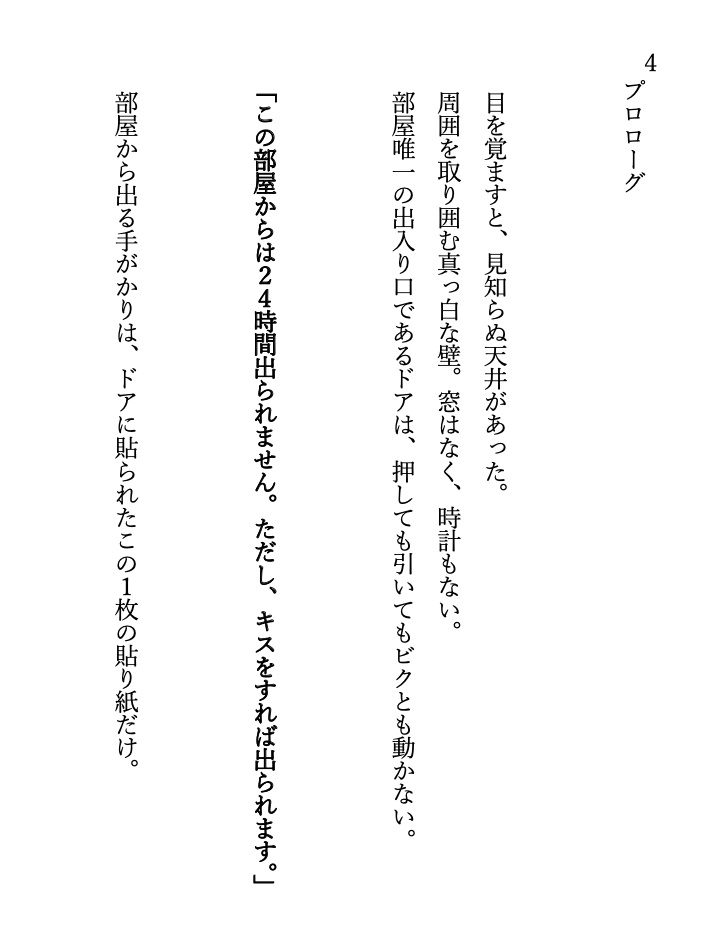 4
プロローグ
目を覚ますと、見知らぬ天井があった。
周囲を取り囲む真っ白な壁。窓はなく、時計もない。
部屋唯一の出入り口であるドアは、押しても引いてもビクとも動かない。
「この部屋からは24時間出られません。ただし、キスをすれば出られます。」
部屋から出る手がかりは、ドアに貼られたこの1枚の貼り紙だけ。